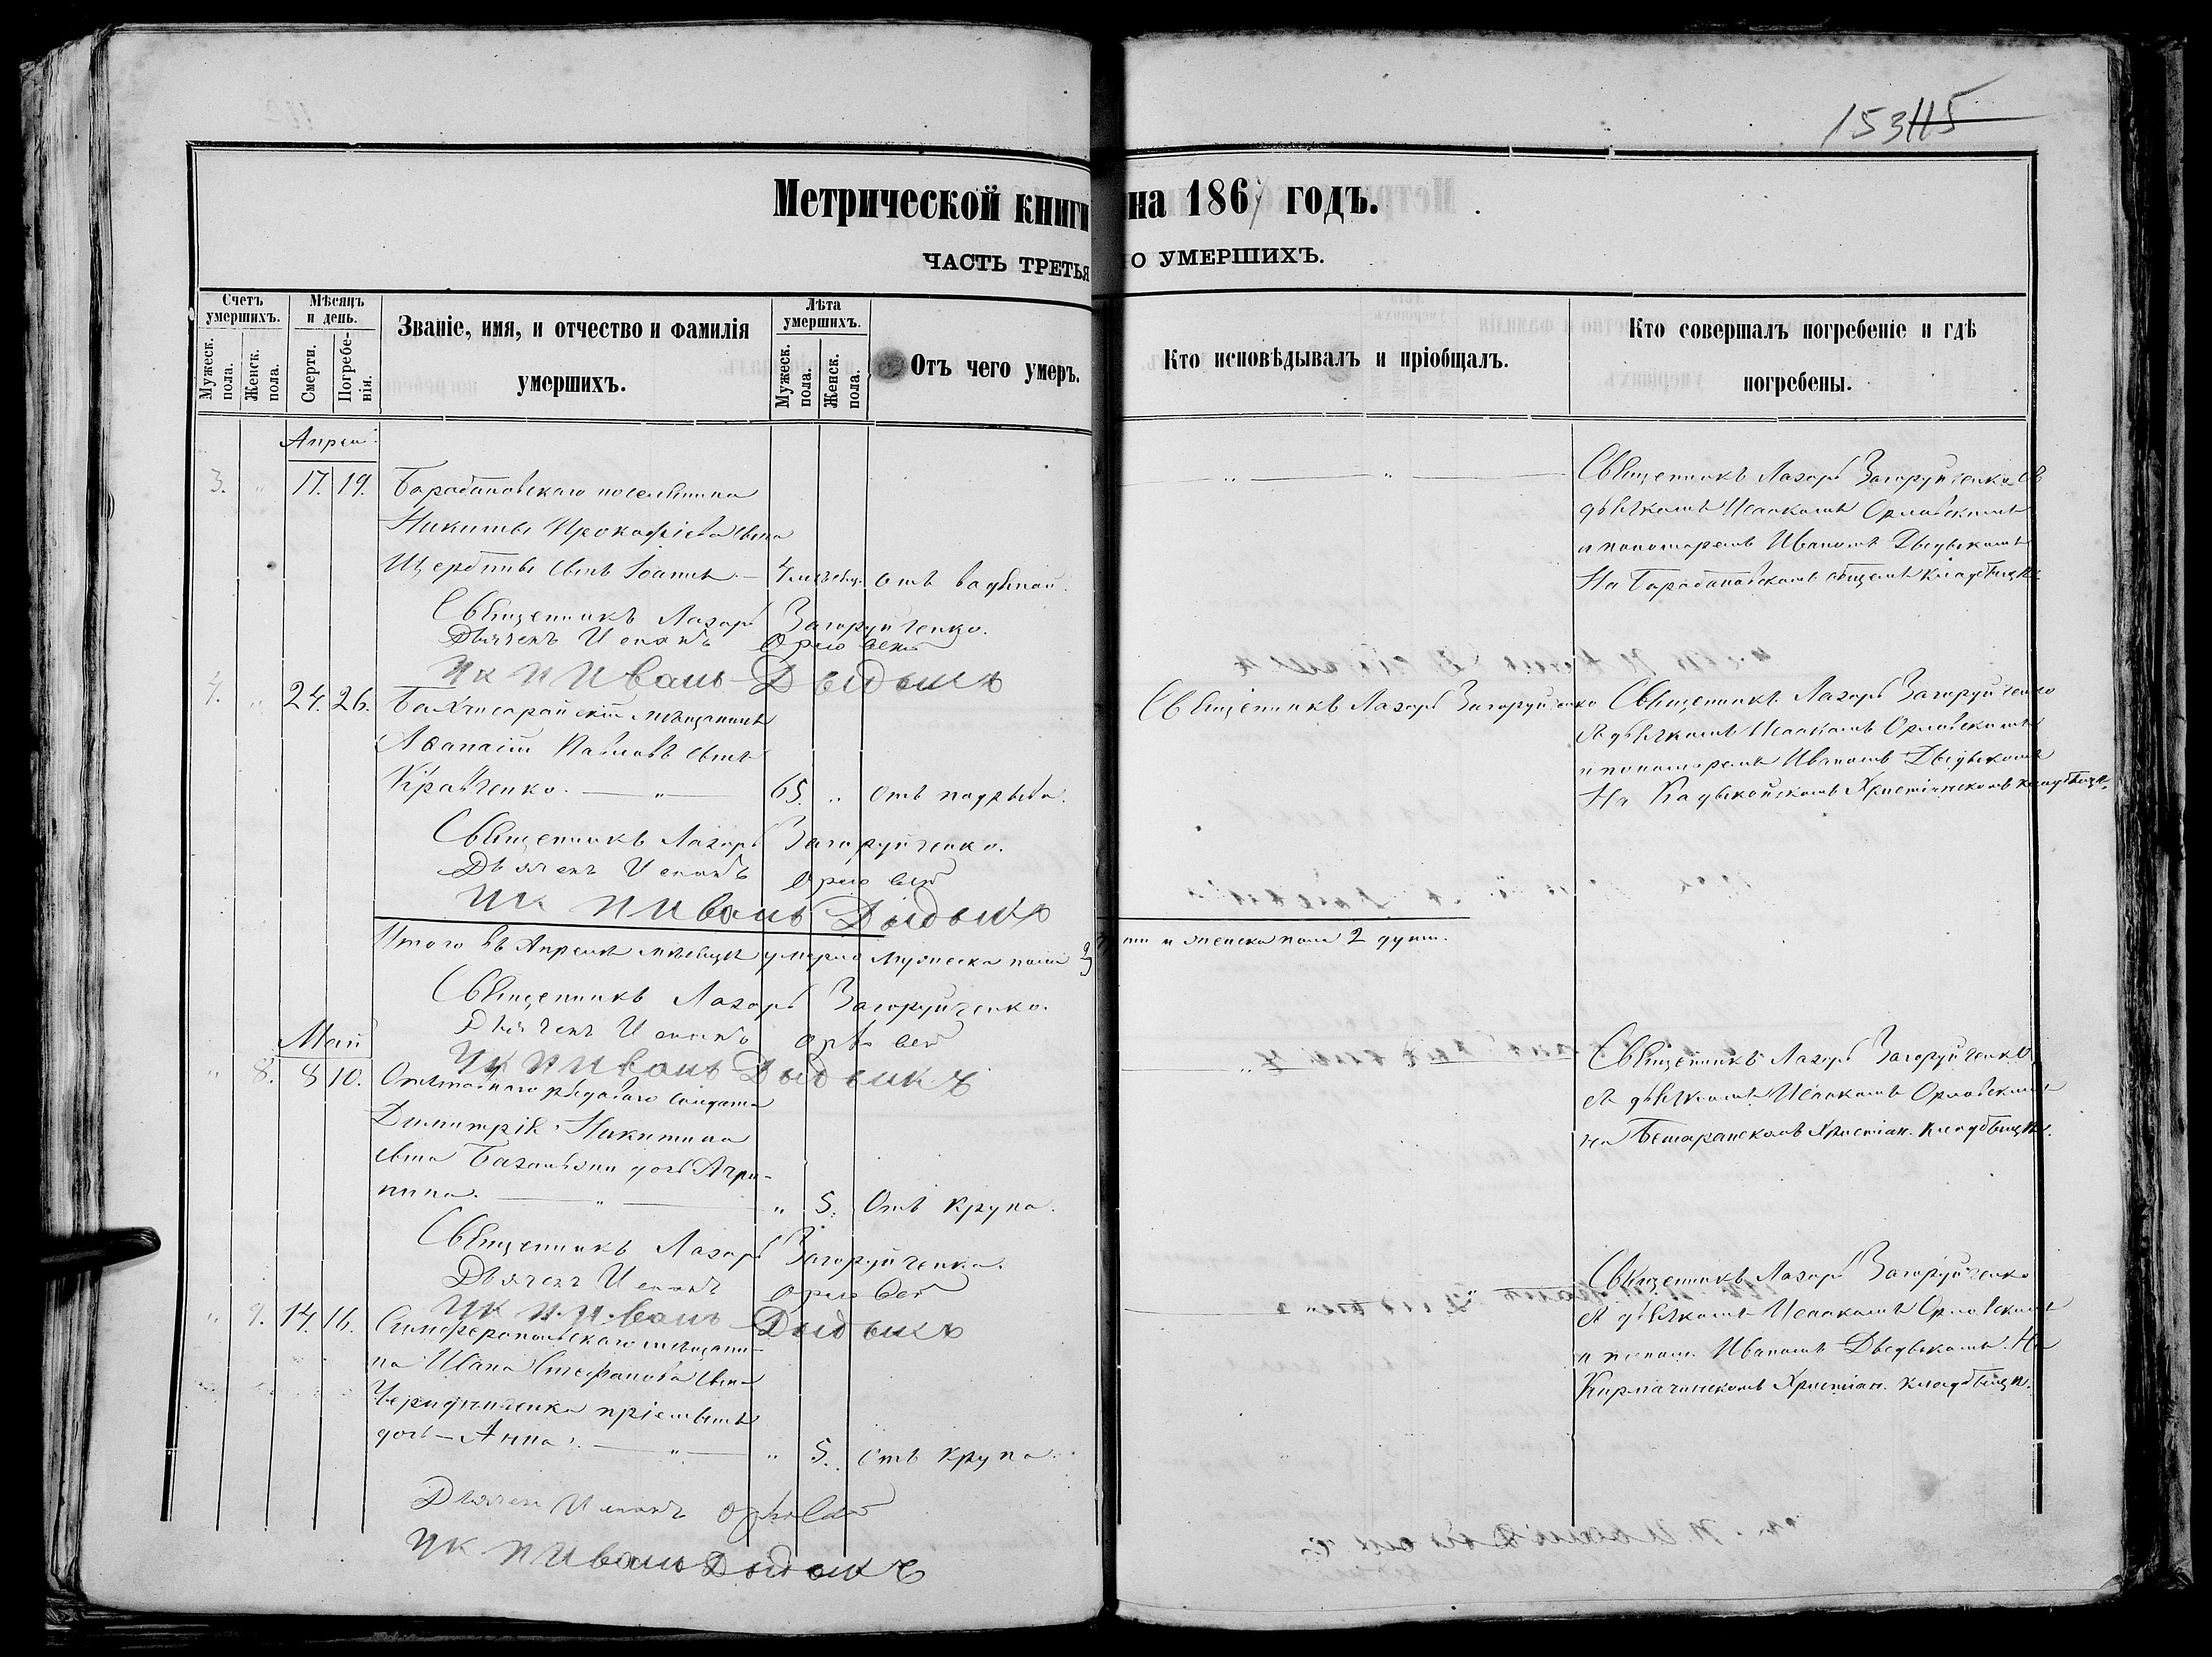 153 115
Метрической книги на 1867 годъ.
ЧАСТЬ ТРЕТЬЯ О УМЕРШИХЪ.
Счетъ умершихъ.
Мужеск. пола.
Женск. пола.
Мѣсяцъ и день.
Смерти.
Погребенія.
Званіе, имя, и отчество и фамилія умершихъ.
Лѣта умершихъ.
Мужеск. пола.
Женск. пола.
Отъ чего умеръ.
Кто исповѣдывалъ и пріобщалъ.
Кто совершалъ погребеніе и гдѣ погребены.
Апрель
3. " 17. 19. поселянина
Никиты Прокофіева сына
сынъ Іоаннъ. — отъ
Священникъ Лазарь Загоруйченко съ
дьячкомъ Исаакомъ Орловскимъ
и пономаремъ Иваномъ Дыдыкомъ
На общемъ кладбищѣ
Священникъ Лазарь Загоруйченко.
Дьячекъ Исаакъ Орловскій
Иванъ Дыдыкъ
4. " 24. 26. Бахчисарайскій мѣщанинъ
Аѳанасій Павловъ сынъ
Кравченко. — " — 65. " отъ надрыва.
Священникъ Лазарь Загоруйченко
Священникъ Лазарь Загоруйченко
съ дьячкомъ Исаакомъ Орловскимъ
и пономаремъ Иваномъ Дыдыкомъ
На Христіанскомъ кладбищѣ
Священникъ Лазарь Загоруйченко.
Дьячекъ Исаакъ Орловскій
Иванъ Дыдыкъ
Итого въ Апрелѣ мѣсяцѣ умерло мужеска пола 2 и женска пола 2 душъ.
Священникъ Лазарь Загоруйченко.
Дьячекъ Исаакъ Орловскій
Иванъ Дыдыкъ
Май
" 8. 8 10. Отставнаго рядоваго солдата
Димитрія Никитина
сына дочь Агри-
пина. — " — " 5. Отъ крупа.
Священникъ Лазарь Загоруйченко
съ дьячкомъ Исаакомъ Орловскимъ
на Христіан. кладбищѣ.
Священникъ Лазарь Загоруйченко.
Дьячекъ Исаакъ Орловскій
Иванъ Дыдыкъ
" 9. 14. 16. Симферопольскаго мѣщани-
на Ивана Стефанова сына
дочь — Анна. — " — " 5. отъ крупа.
Священникъ Лазарь Загоруйченко
съ дьячкомъ Исаакомъ Орловскимъ
и поном. Иваномъ Дыдыкомъ. На
Христіан. кладбищѣ.
Дьячекъ Исаакъ Орловскій
Иванъ Дыдыкъ